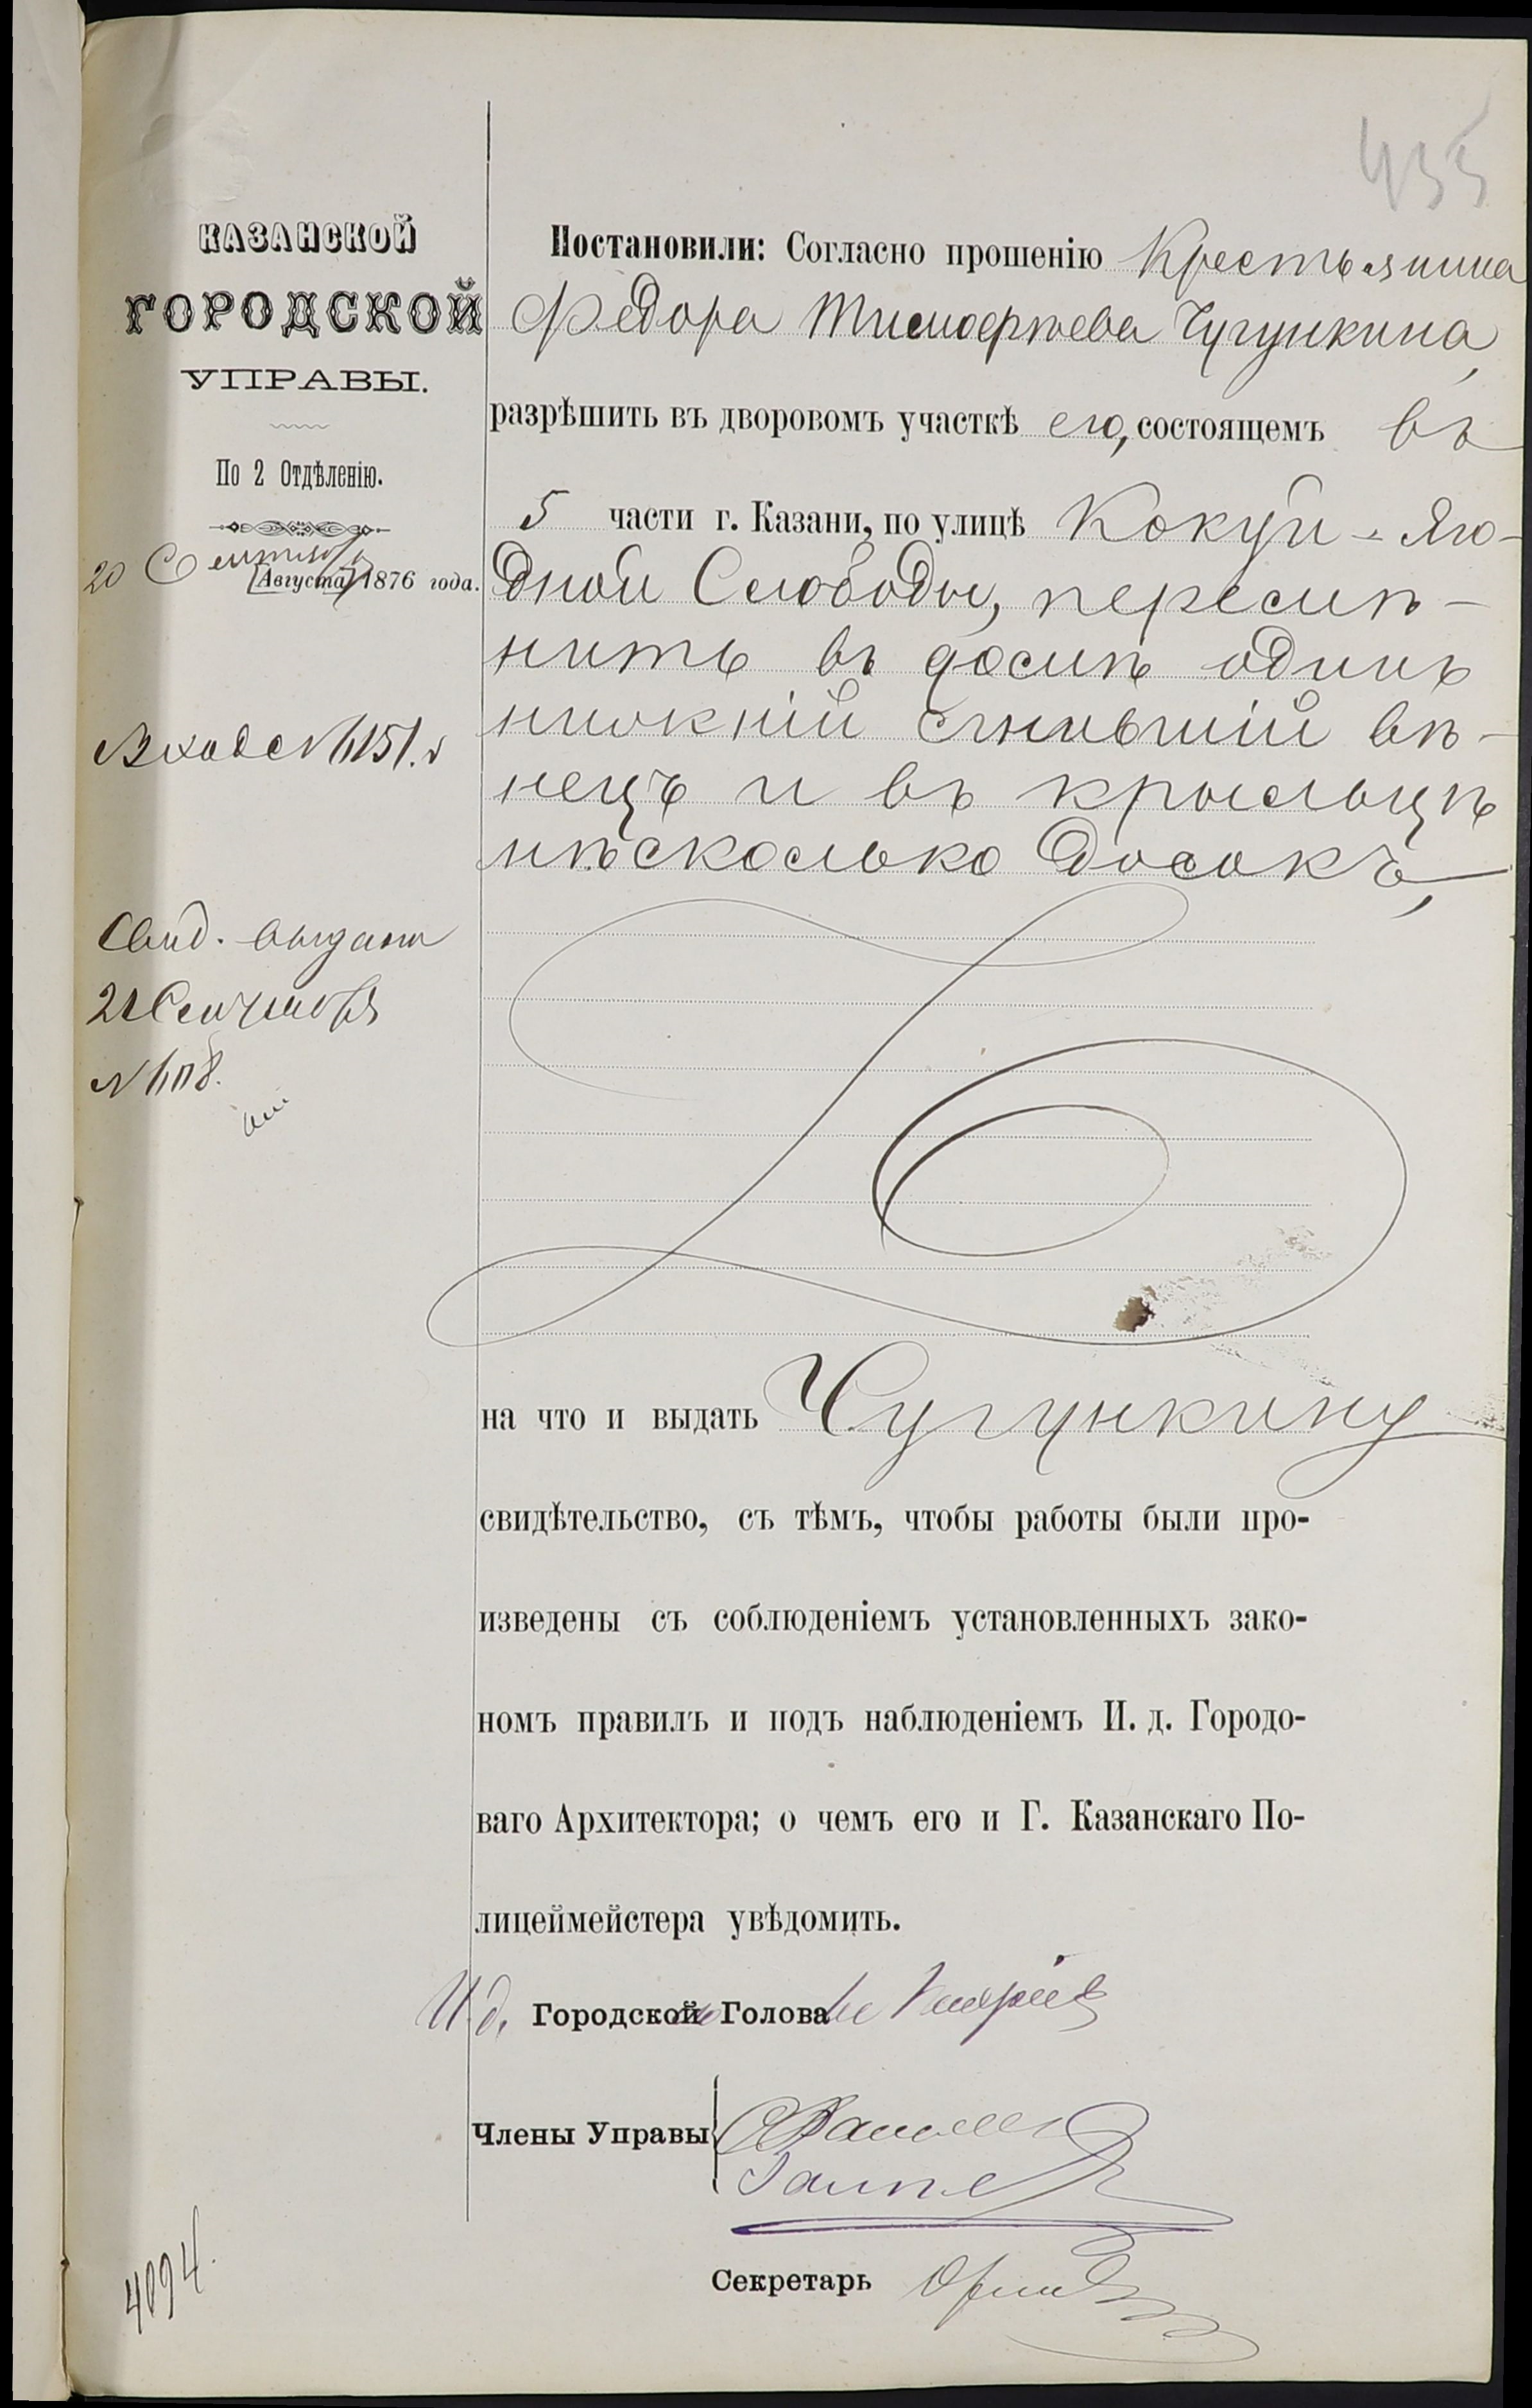 435
КАЗАНСКОЙ
ГОРОДСКОЙ
УПРАВЫ.
По 2 Отдѣленію.
20 Сентября
[Августа] 1876 года.
Входъ №
Свид. выдано
21 Сентября
№
Постановили: Согласно прошенію Крестьянина
Федора Тимофеева Чугункина,
разрѣшить въ дворовомъ участкѣ его, состоящемъ въ
5 части г. Казани, по улицѣ Кокуй - Яго-
дной Слободы, перемѣ-
нить въ домѣ одинъ
нижній сгнившій вѣ-
нецъ и въ крыльцѣ
нѣсколько досокъ,
на что и выдать Чугункину
свидѣтельство, съ тѣмъ, чтобы работы были про-
изведены съ соблюденіемъ установленныхъ зако-
номъ правилъ и подъ наблюденіемъ И. д. Городо-
ваго Архитектора; о чемъ его и Г. Казанскаго По-
лицеймейстера увѣдомить.
И. д. Городской Голова
Члены Управы
Секретарь
4094.